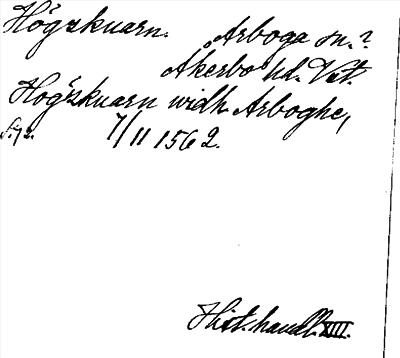 Högzkuarn. Arboga sn.?
Åkerbo hd. Vstm.
Hogzkuarn widh Arboghe,
7/11 1562.
Hist. handl. XIII.